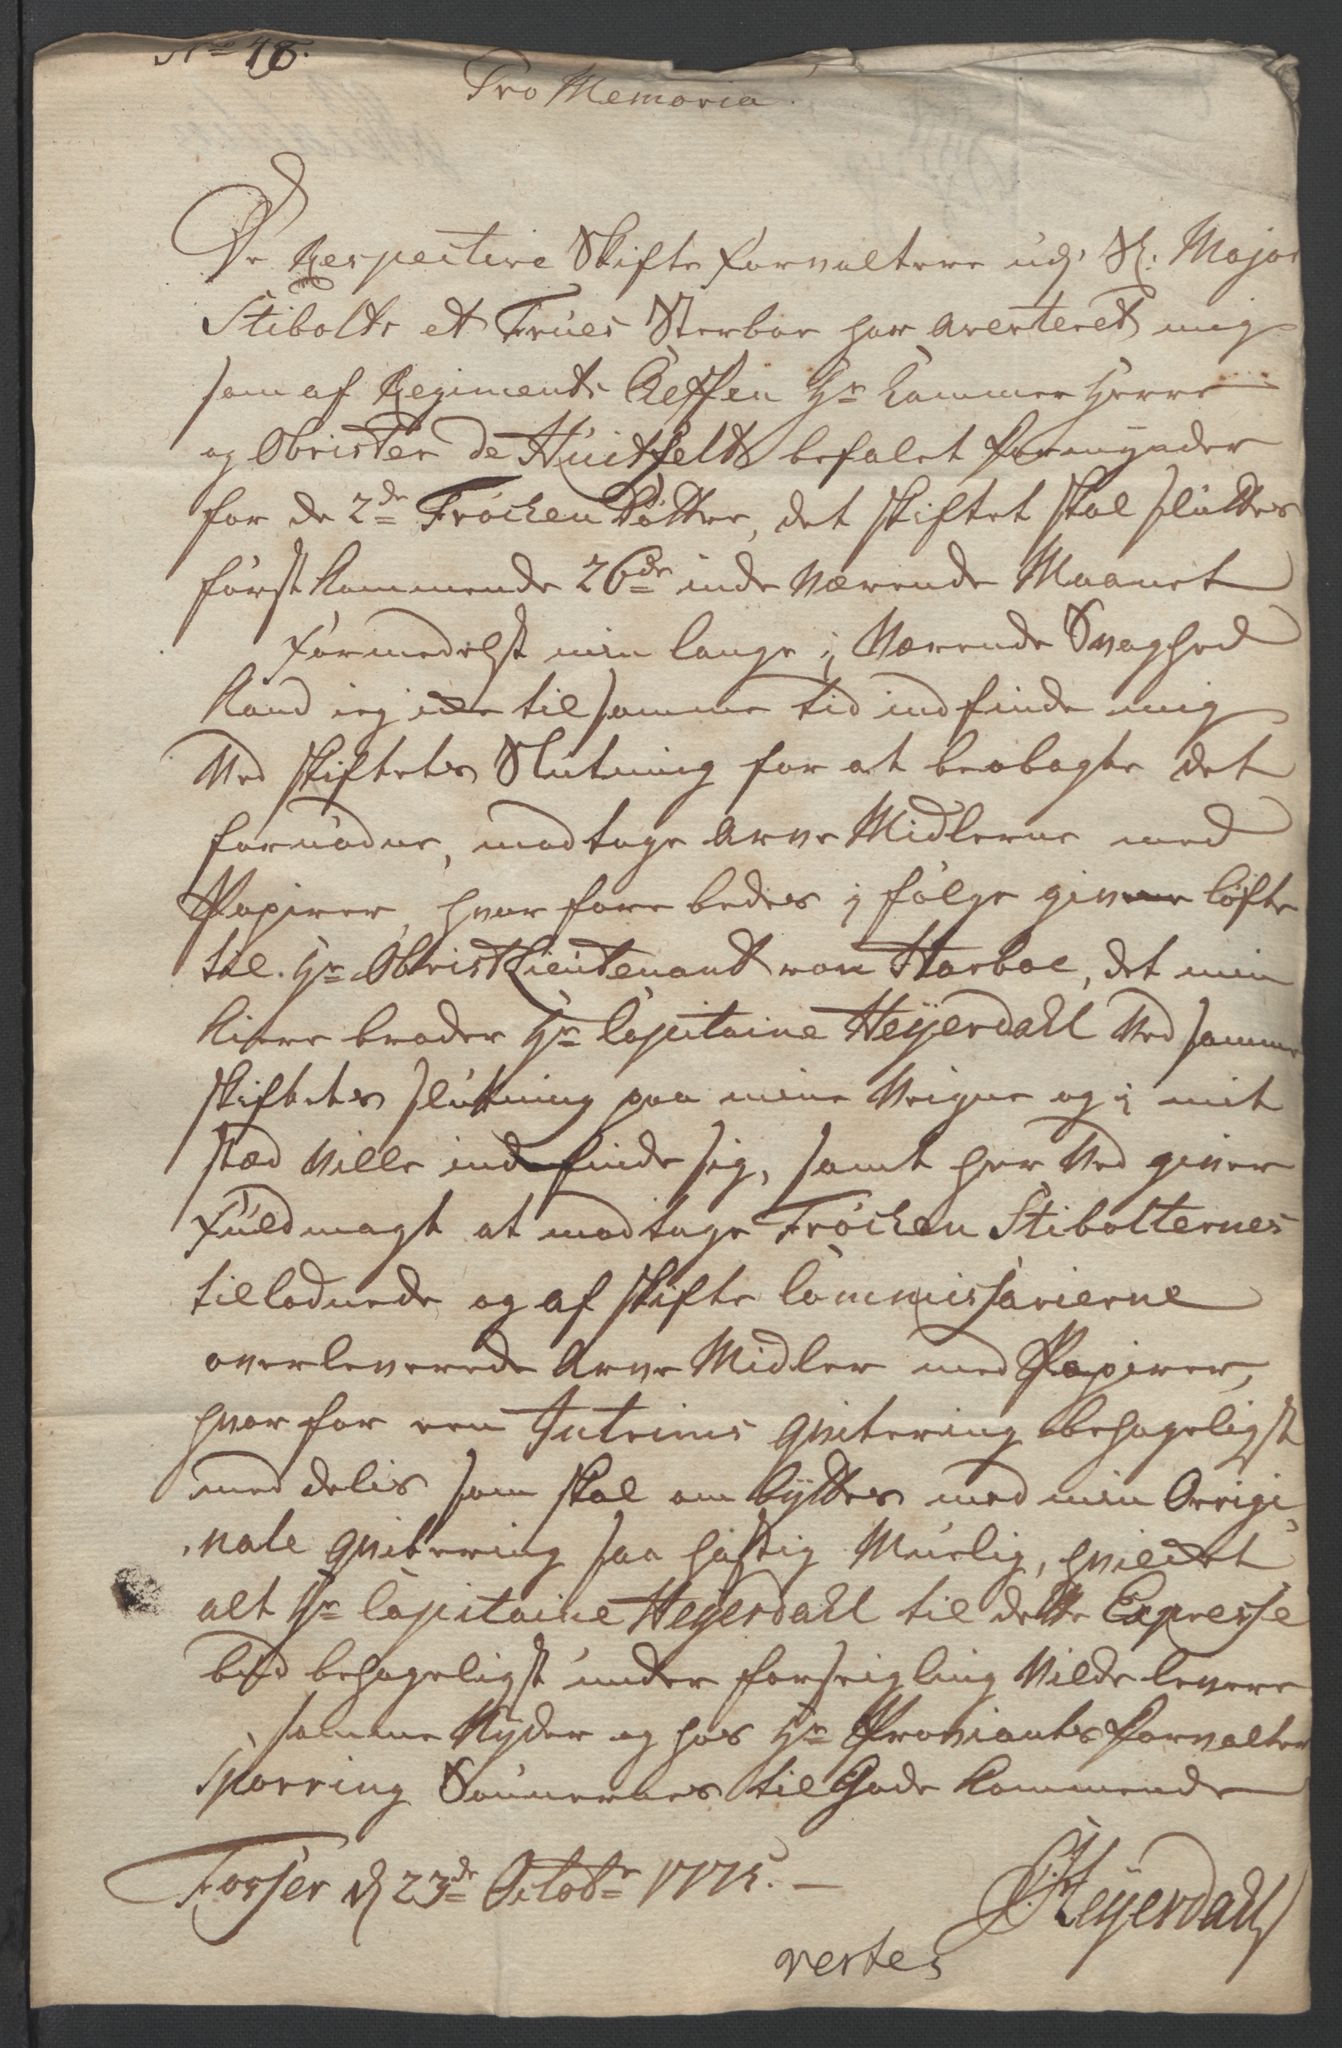 No 48.
Pro Memoria.
De Respective Skifte forvaltere udj Sl: Major
Stibolts et Frues Sterboe har averteret mig
som af Regiments Cheffen Hr Kammer Herre
og Obrister de Huitfeldt befalet formynder
for de 2de Frøchen Døttre, det skiftet skal sluttes
først kommende 26de inde værende Maanet
Formedelst min lange i Værende Svaghed
kand ieg icke til samme tid indfinde mig
Ved skiftets Slutning for at beobagte det
fornødne, modtage Arve Midlerne med
Papirer, hvor fore bedes i følge givne løfte
til Hr Obristlieutenant von Harboe, det min
kiere broder Hr Capitaine Heyerdahl Ved samme
skiftets slutning paa mine Veigne og i mit
stæd ville indefinde sig, samt her Ved giver
Fuldmagt at modtage Frøchen Stibolternes
tillodnede og af skifte Commissarierne
overleverede Arve Midler med Papirer,
hvor for een Interims qvitering behageligst
med delis som skal ombyttes med min Orrigi,
nale qvitering saa hastig Muelig, hvilcket
alt Hr Capitaine Heyerdahl til dette Expresse
bud behageligst under forseigling Vilde levere
samme Nyder og hos Hr Proviants forvalter
Sporring Sønnernes til Gode kommende
Fosser d 23de Octobr 1775. —
Heyerdahl
vertes